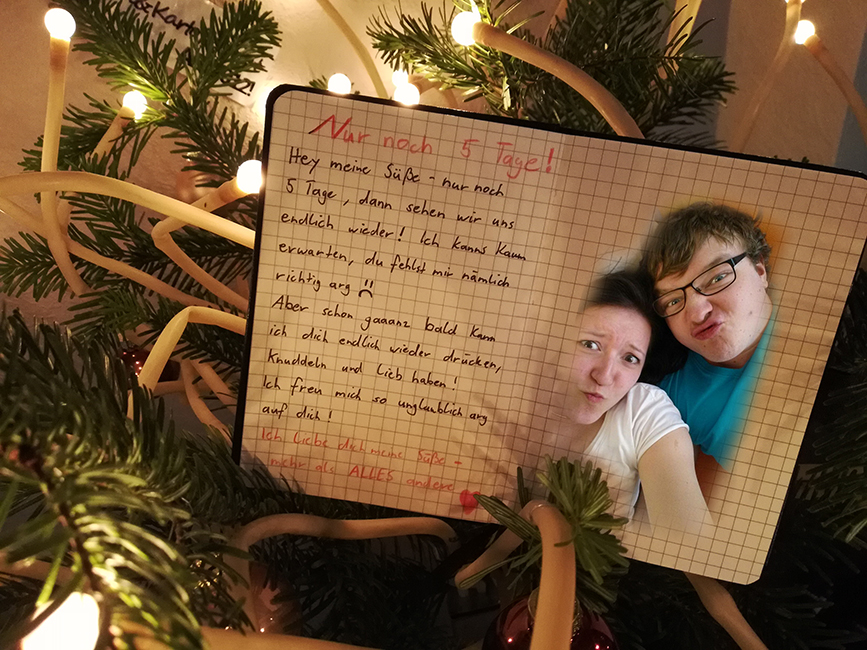 Nur noch 5 Tage!
Hey meine Süße - nur noch
5 Tage, dann sehen wir uns
endlich wieder! Ich kanns kaum
erwarten, du fehlst mir nämlich
richtig arg
Aber schon gaaanz bald kann
ich dich endlich wieder drücken,
Knuddeln und lieb haben!
Ich freu mich so unglaublich arg
auf dich!
Ich liebe dich meine Süße -
mehr als ALLES andere